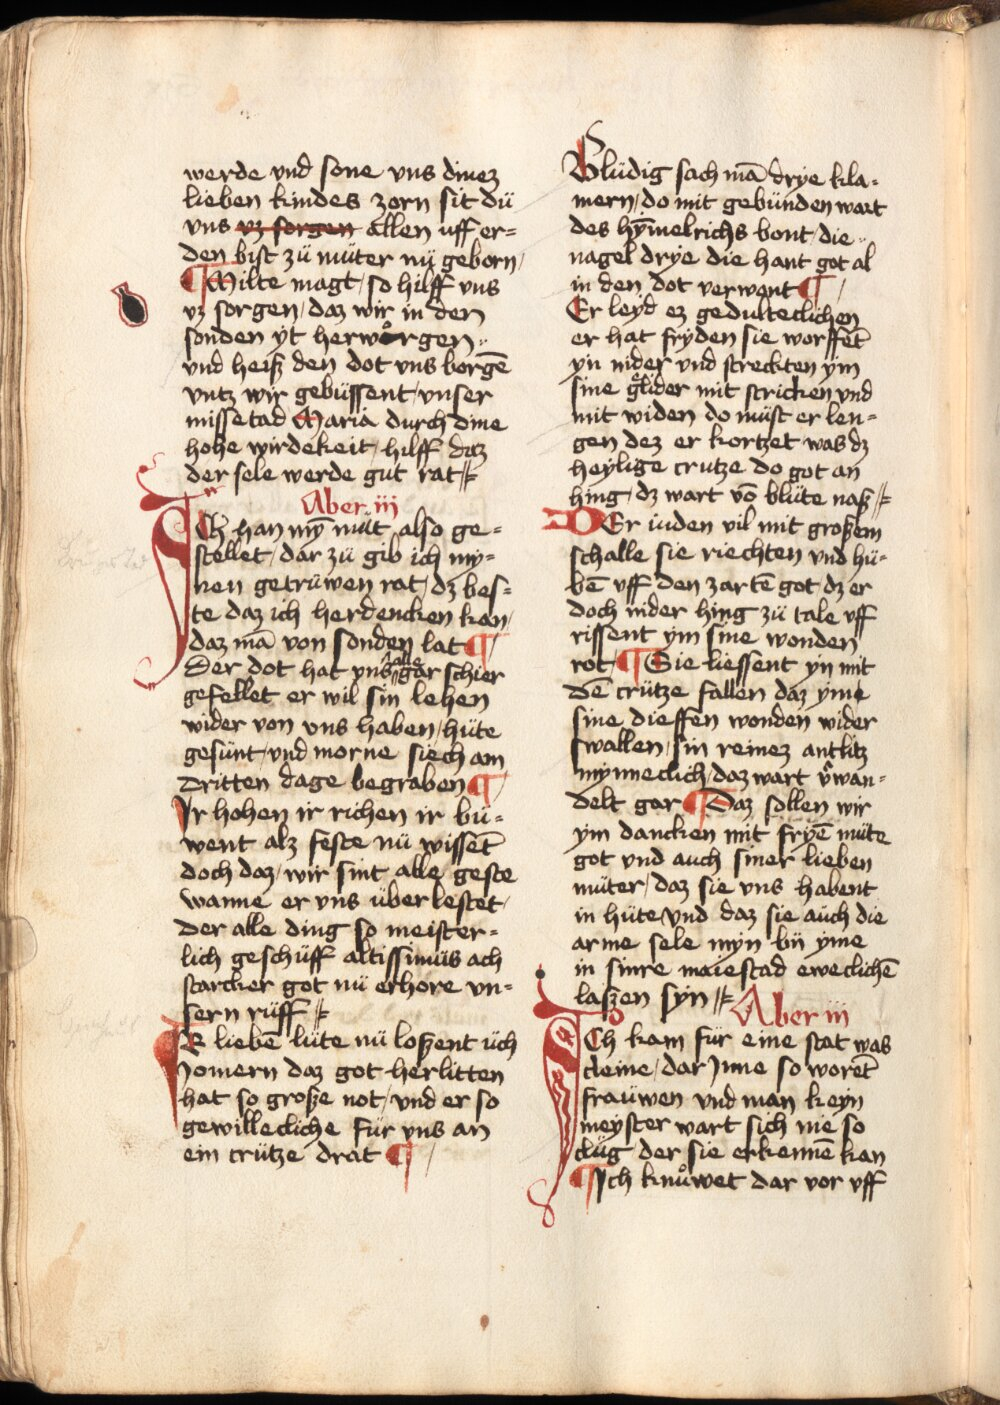 werde vnd sone vns dinez
lieben kindes zorn sit dü
vns vz sorgen allen uff er=
den bist zü müter nü geborn /
¶ Milte magt / so hilff vns
vz sorgen / daz wir in den
sonden yt herwoͤrgen
vnd heiß den dot vns borgē
vntz wir gebüssent / vnser
missetad Maria durch dine
hohe wirdekeit / hilff daz
der sele werde gut rat //
Aber iii
ICh han mȳ müt also ge=
stellet / dar zü gib ich my=
nen getrüwen rat / dz bes=
te daz ich herdencken kan /
daz mā von sonden lat ¶ /
Der dot hat vns alle gar schier
gefellet er wil sin lehen
wider von vns haben / hüte
gesünt / vnd morne siech am
dritten dage begraben ¶ /
Ir hohen ir richen ir bü=
went alz feste nü wissēt
doch daz / wir sint alle geste
wanne er vns überlestet /
der alle ding so meister=
lich geschüff altissimüs ach
starcker got nü erhore vn=
sern rüff //
IR liebē lüte nü loßent üch
Jomern daz got herlitten
hat so große not / vnd er so
gewillecliche für vns an
ein crütze drat ¶ /
Blüdig sach mā drye kla=
mern / do mit gebünden wart
des hȳmelrichs bont / die
nagel drye die hant got al
in den dot verwont ¶ /
Er leyd ez gedulteclichen
er hat fryden sie worffēt
yn nider vnd streckten ym
sine glider mit stricken vnd
mit widen do müst er len=
gen dez er kortzet was dz
heylige crutze do got an
hing / dz wart vō blüte naß //
DEr iüden vil mit großem
schalle sie riechten vnd hü=
bē vff den zartē got dz er
doch nider hing zü tale vff
rissent ym sine wonden
rot / ¶ Sie liessent yn mit
dē crütze fallen daz yme
sine dieffen wonden wider
swallen / sin reinez antlitz
mynneclich / daz wart v̾wan=
delt gar ¶ Daz sollen wir
ym dancken mit fryē müte
got vnd auch siner lieben
müter / daz sie vns habent
in hüte vnd daz sie aüch die
arme sele myn bij yme
in sinre maiestad eweclichē
laßen syn // Aber iii
ICh kam für eine stat was
cleine / dar Jnne so worēt
frauwen vnd man keyn
meyster wart sich nie so
clüg der sie erkennē kan
¶ Ich knuͦwet dar vor vff